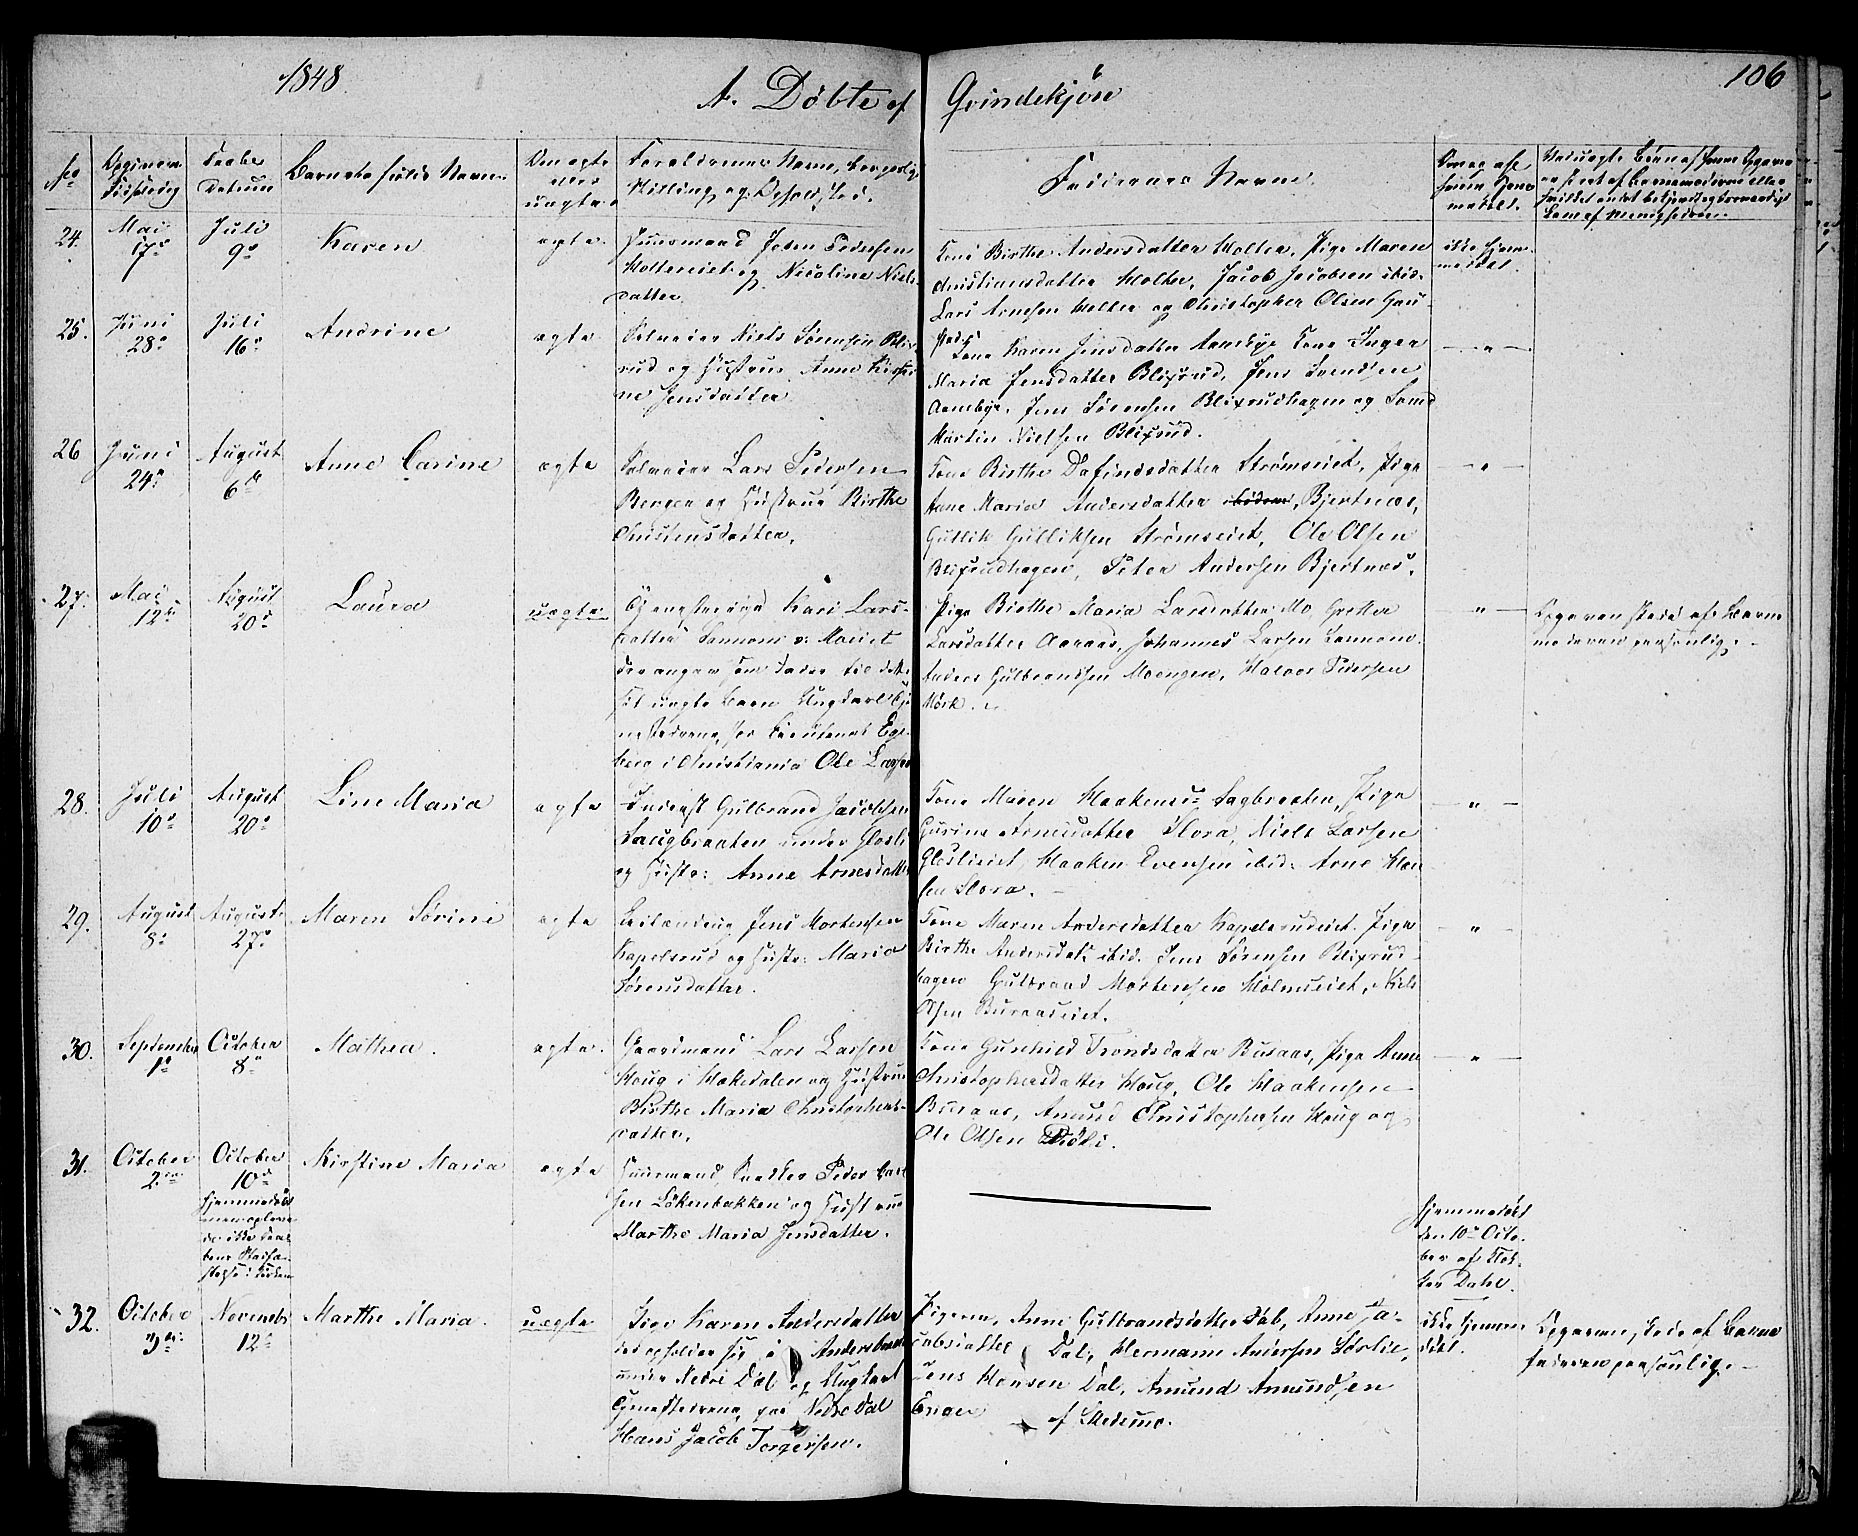 1848.
A. Døbte af Qvindekjøn
106
No
Daabs Datum
Barnets fulde Navn
Om ægte eller uægte
Forældrenes Navn, borgerlige Stilling og Opholdssted.
Faddernes Navne.
24.
Mai 17de
Juli 9de
Karen
ægte.
Huusmand Josen Pedersen
Holtereiet og Nicoline Niels-
datter
Kone Birthe Andersdatter Holter, Pige Maren
Christiansdatter Holter, Jacob Jacobsen ibid.
Lars Arnesen Holter og Christopher Olsen Gau-
stad.
ikke hjem-
medøbt.
25.
Juni 28de
Juli 16de
Andrine
ægte
Selveier Niels Sørensen Blix-
rud og Hustrue Anne Kirsti-
ne Jensdatter
Kone Karen Jensdatter Aaneby, Kone Inger
Maria Jensdatter Blixrud, Jens Svendsen
Aanebye, Jens Sørensen Blixrudhagen og
Martin Nielsen Blixrud.
26
Juni 24de
August 6te
Anne Carine
ægte
Selveier Lars Pedersen
Bergen og Hustrue Birthe
Christensdatter.
Kone Birthe Dafindsdatter Strømseiet, Pige
Anne Maria Andersdatter ibidem, Bjertnæs,
Gullik Gulliksen Strømseiet, Ole Olsen
Blixrudhagen, Peter Andersen Bjertnæs.
27.
Mai 12te
August 20de
Laura
uægte
Pige Kari Lars-
datter
der angav som Fader til dette
sit uægte Barn Ungkarl Tje-
nestedreng hos Lieutenant Ege-
berg i Christiania Ole Larsen
Pige Birthe Maria Larsdatter Mo, Grethe
Larsdatter Aaraas, Johannes Larsen
Anders Gulbrandsen Moengen, Halvor Pedersen
Mørk.
Opgaven skede af Barne-
moderen personlig.
28.
Juli 10de
August 20de
Line Maria
ægte
Inderst Gulbrand Jacobsen
Saugbraaten under Glosli
og Hustr: Anne Arnesdatter
Kone Maren Haakensd: Sagbraaten, Pige
Gurine Arnesdatter Slora, Niels Larsen
Gloslieiet, Haaken Evensen ibid. Arne Han-
sen Slora.
29.
August 8de
August 27de
Maren Sørine
ægte
Leilænding Jens Mortensen
Kapelsrud og Hustr: Maria
Sørensdatter.
Kone Maren Andersdatter Kapelsrudeiet. Pige
Birthe Andersdatt: ibid. Jens Sørensen Blixrud-
hagen Gulbrand Mortensen Holmseiet, Niels
Olsen Buraaseiet.
30.
September 1ste
October 8de
Mathea.
ægte.
Gaardmand Lars Larsen
Houg i Hakedalen og Hustrue
Birthe Maria Christophers-
datter.
Kone Gunhild Trondsdatter Buraas, Pige Anne
Christophersdatter Houg, Ole Haakensen
Buraas, Amund Christophersen Houg og
Ole Olsen
31.
October 2den
October 10de
hjemmedøbt
men oplevede
ikke Daa-
bens Stadfæ-
stelse i Kirken
Kirstine Maria
ægte
Huusmand, Snedker Peder Carl-
sen Løkenbakken og Hustrue
Marthe Maria Jensdatter.
hjemmedøbt
den 10de Octo-
ber af Klok-
ker Dahl.
32.
October 3die
Novembr 12te
Marthe Maria.
uægte
Pige Karen Andersdatter
opholder sig i Andersbraaten
under Nedre Dal og Ungkarl
Tjenestedreng paa Nedre Dal
Hans Jacob Torgersen.
Pigerne, Anne Gulbrandsdatter Dal, Anne Ja-
cobsdatter Dal, Hermann Andersen Sørlie,
Jens Hansen Dal, Amund Amundsen
Enger af Skedsmo.
ikke hjemme-
døbt.
Opgaven skede af Barne-
faderen personlig.